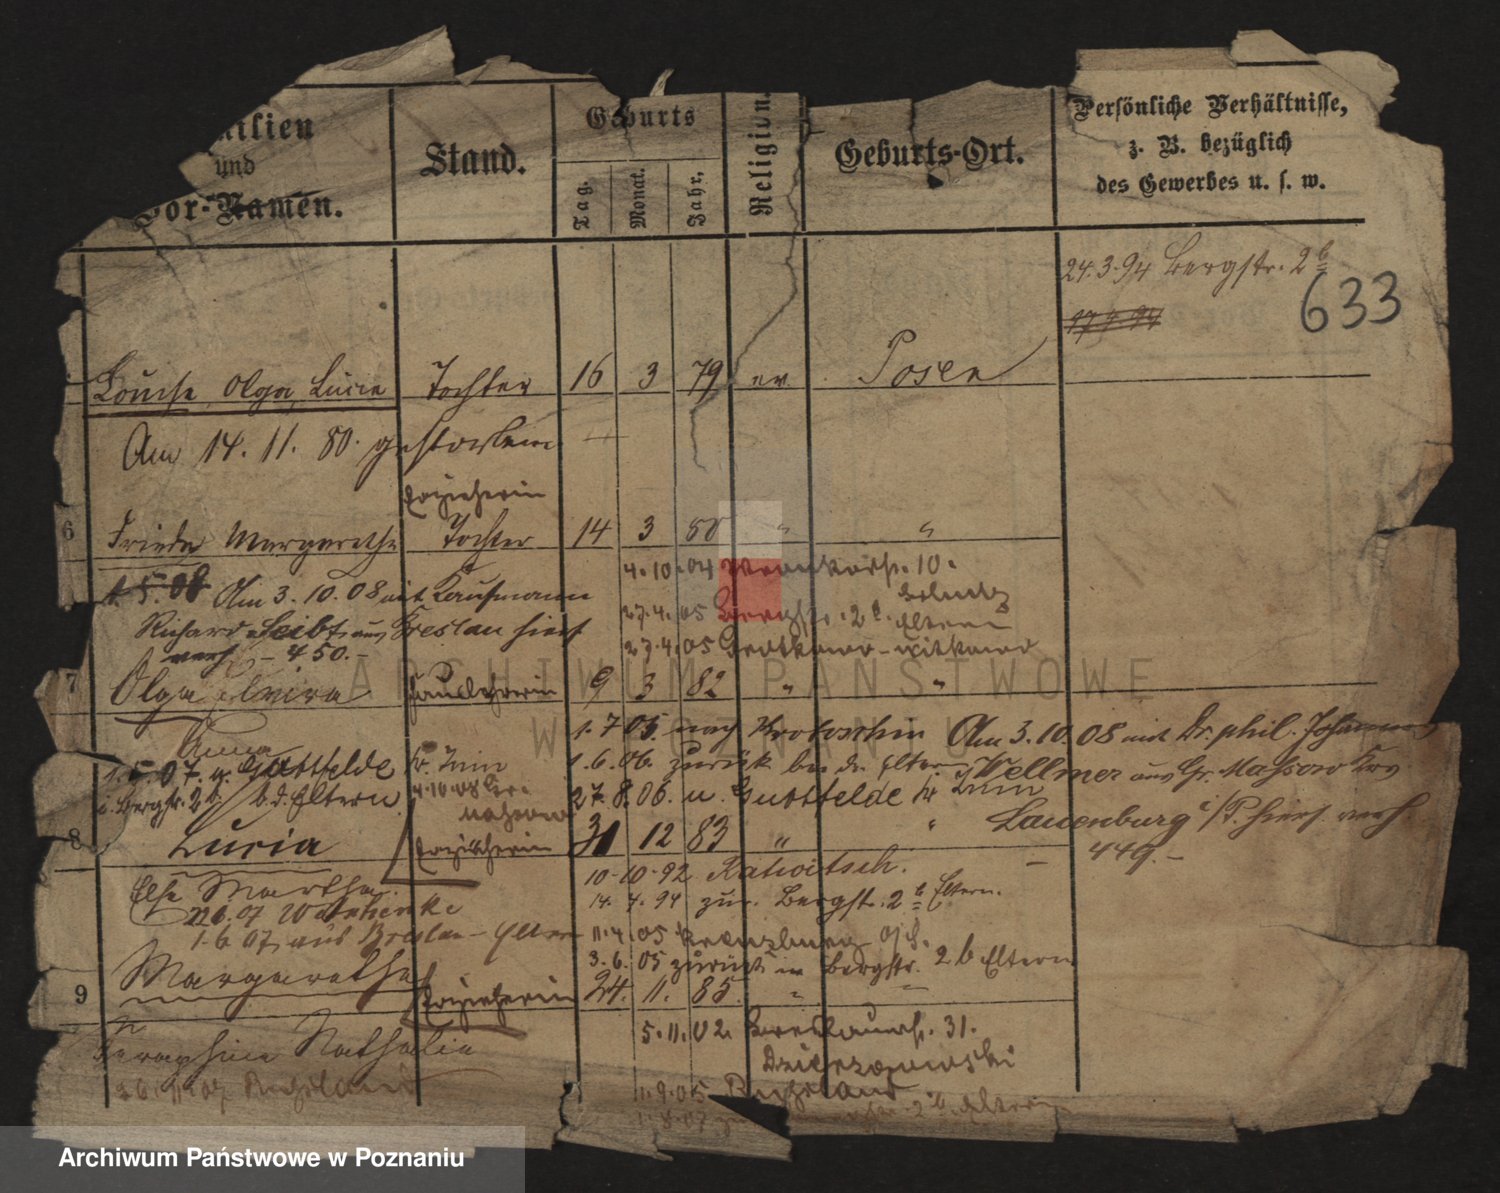 milien
und
Vor-Namen.
Stand.
Geburts
Tag.
Monat.
Jahr.
Religion.
Geburts-Ort.
Persönliche Verhältnisse,
z. B. bezüglich
des Gewerbes u. s. w.
24.3.94 Bergstr. 2b
633
Louise Olga Lucie Tochter 16 3 79 ev. Posen
Am 14. 11. 80. gestorben
Erzieherin
6 Frieda Margarethe Tochter 14 3 80 " "
4.10.04 10.
1.5.08 Am 3.10.08 mit Kaufmann
27.4.05 Bergstr. 2b Eltern
Richard Leibt aus Breslau hier
verh. – 450. –
27.4.05 Witkowo
7 Olga Elvira Hauslehrerin 9 3 82 " "
1.7.05. nach Krotoschin Am 3.10.08 mit Dr. phil. Johannes
Anna
1.5.07. u. Gutfelde Kr. Znin 1.6.06. zurück bei d. Eltern Wellmer aus Gr. Massow Krs.
i. Bergstr. 2b. b. d. Eltern 4.10.08 27.8.06. u. Gutfelde Kr. Znin
Lauenburg i/P. hier verh.
8 Lucia Erzieherin 31 12 83 " "
– 449. –
Else Martha. 10.10.92 Katwitsch.
22.6.07 14.4.94 zur. Bergstr. 2b Eltern.
1.6.07 aus Breslau – Eltern 11.4.05 Kreuzburg O/S.
3.6.05 zurück in Bergstr. 2b Eltern
9 Margarethe Erzieherin 24. 11. 85. "
5.11.02 Breslauerstr. 31.
Seraphine Nathalie
Dziegzowski
26.11.07 Russland 1.9.05 Russland
1.8.07 2b. Eltern
ARCHIWUM PAŃSTWOWE
W POZNANIU
Archiwum Państwowe w Poznaniu